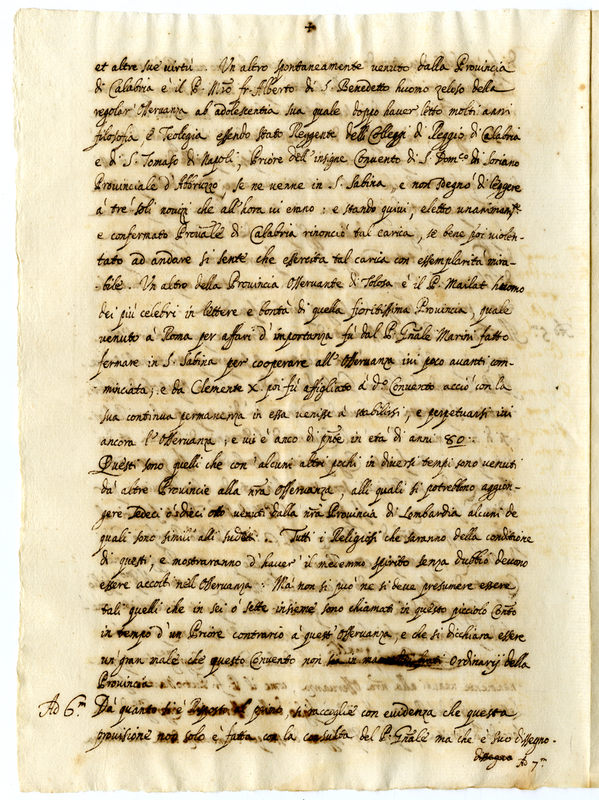 et altre sue virtù. Un altro spontaneamente venuto dalla Provincia
di Calabria è il P. Mro fr. Alberto di S. Benedetto huomo zeloso della
regolar Osservanza ab adolescentia sua quale doppo haver letto molti anni
filosofia e Teologia essendo stato Reggente delli Colleggi di Reggio di Calabria
e di S. Tomaso di Napoli, Priore dell'insigne Convento di S. Domco di Soriano
Provinciale d'Abbruzzo, se ne venne in S. Sabina, e non sdegnò di leggere
à trè soli novizi che all'hora vi erano: e stando quivi, eletto unanimamte
e confermato Provale di Calabria rinonciò tal carica, se bene poi violen-
tato ad andare si sente che esercita tal carica con essemplarità mira-
bile. Un altro della Provincia Osservante di Tolosa è il P. Mailat huomo
dei più celebri in lettere e bontà di quella fioritissima Provincia, quale
venuto à Roma per affari d'importanza fù dal P. Gnale Marini fatto
fermare in S. Sabina per cooperare all'Osservanza ivi poco avanti com-
minciata; e da Clemente X. poi fù affigliato à do Convento acciò con la
sua continua permanenza in essa venisse à stabilirsi, e perpetuarsi ivi
ancora l'Osservanza; e vi è anco di pnte in età di anni 80:
Questi sono quelli che con alcuni altri pochi in diversi tempi sono venuti
da altre Provincie alla nra Osservanza, alli quali si potrebbono aggion-
gere sedeci o dieci otto venuti dalla nra Provincia di Lombardia alcuni de
quali sono simili alli sudeti. Tutti i Religiosi che saranno della conditione
di questi, e mostraranno d'haver il medemmo spirito senza dubbio devono
essere accolti nell'Osservanza: Ma non si può ne si deve presumere essere
tali quelli che in sei o sette insieme sono chiamati in questo piccolo Conto
in tempo d'un Priore contrario à quest'Osservanza, e che si dicchiara essere
un gran male che questo Convento non sia in mano Ordinarij della
Provincia
Ad 6.m Da quanto si è al primo, si raccoglie con evidenza che questa
provisione non solo e fatta con la consulta del P. Gnale ma che è suo dissegno.
Ad 7.m